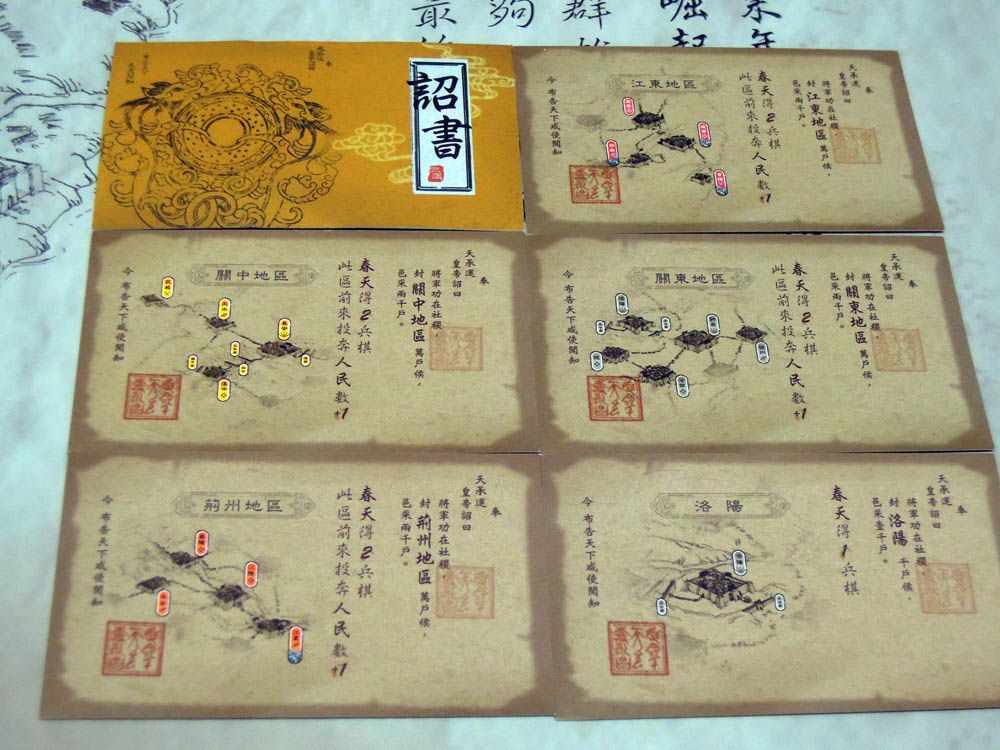 最
夠
群
崛起
來年
詔書
江東地區
奉
天承運
皇帝詔曰
將軍功在社稷，
封江東地區萬戶侯，
邑采兩千戶。
春天得2兵棋
此區前來投奔人民數+1
今
布告天下咸使聞知
關中地區
奉
天承運
皇帝詔曰
將軍功在社稷，
封關中地區萬戶侯，
邑采兩千戶。
春天得2兵棋
此區前來投奔人民數+1
今
布告天下咸使聞知
關東地區
奉
天承運
皇帝詔曰
將軍功在社稷，
封關東地區萬戶侯，
邑采兩千戶。
春天得2兵棋
此區前來投奔人民數+1
今
布告天下咸使聞知
荊州地區
奉
天承運
皇帝詔曰
將軍功在社稷，
封荊州地區萬戶侯，
邑采兩千戶。
春天得2兵棋
此區前來投奔人民數+1
今
布告天下咸使聞知
洛陽
奉
天承運
皇帝詔曰
將軍功在社稷，
封洛陽千戶侯，
邑采壹千戶。
春天得1兵棋
今
布告天下咸使聞知